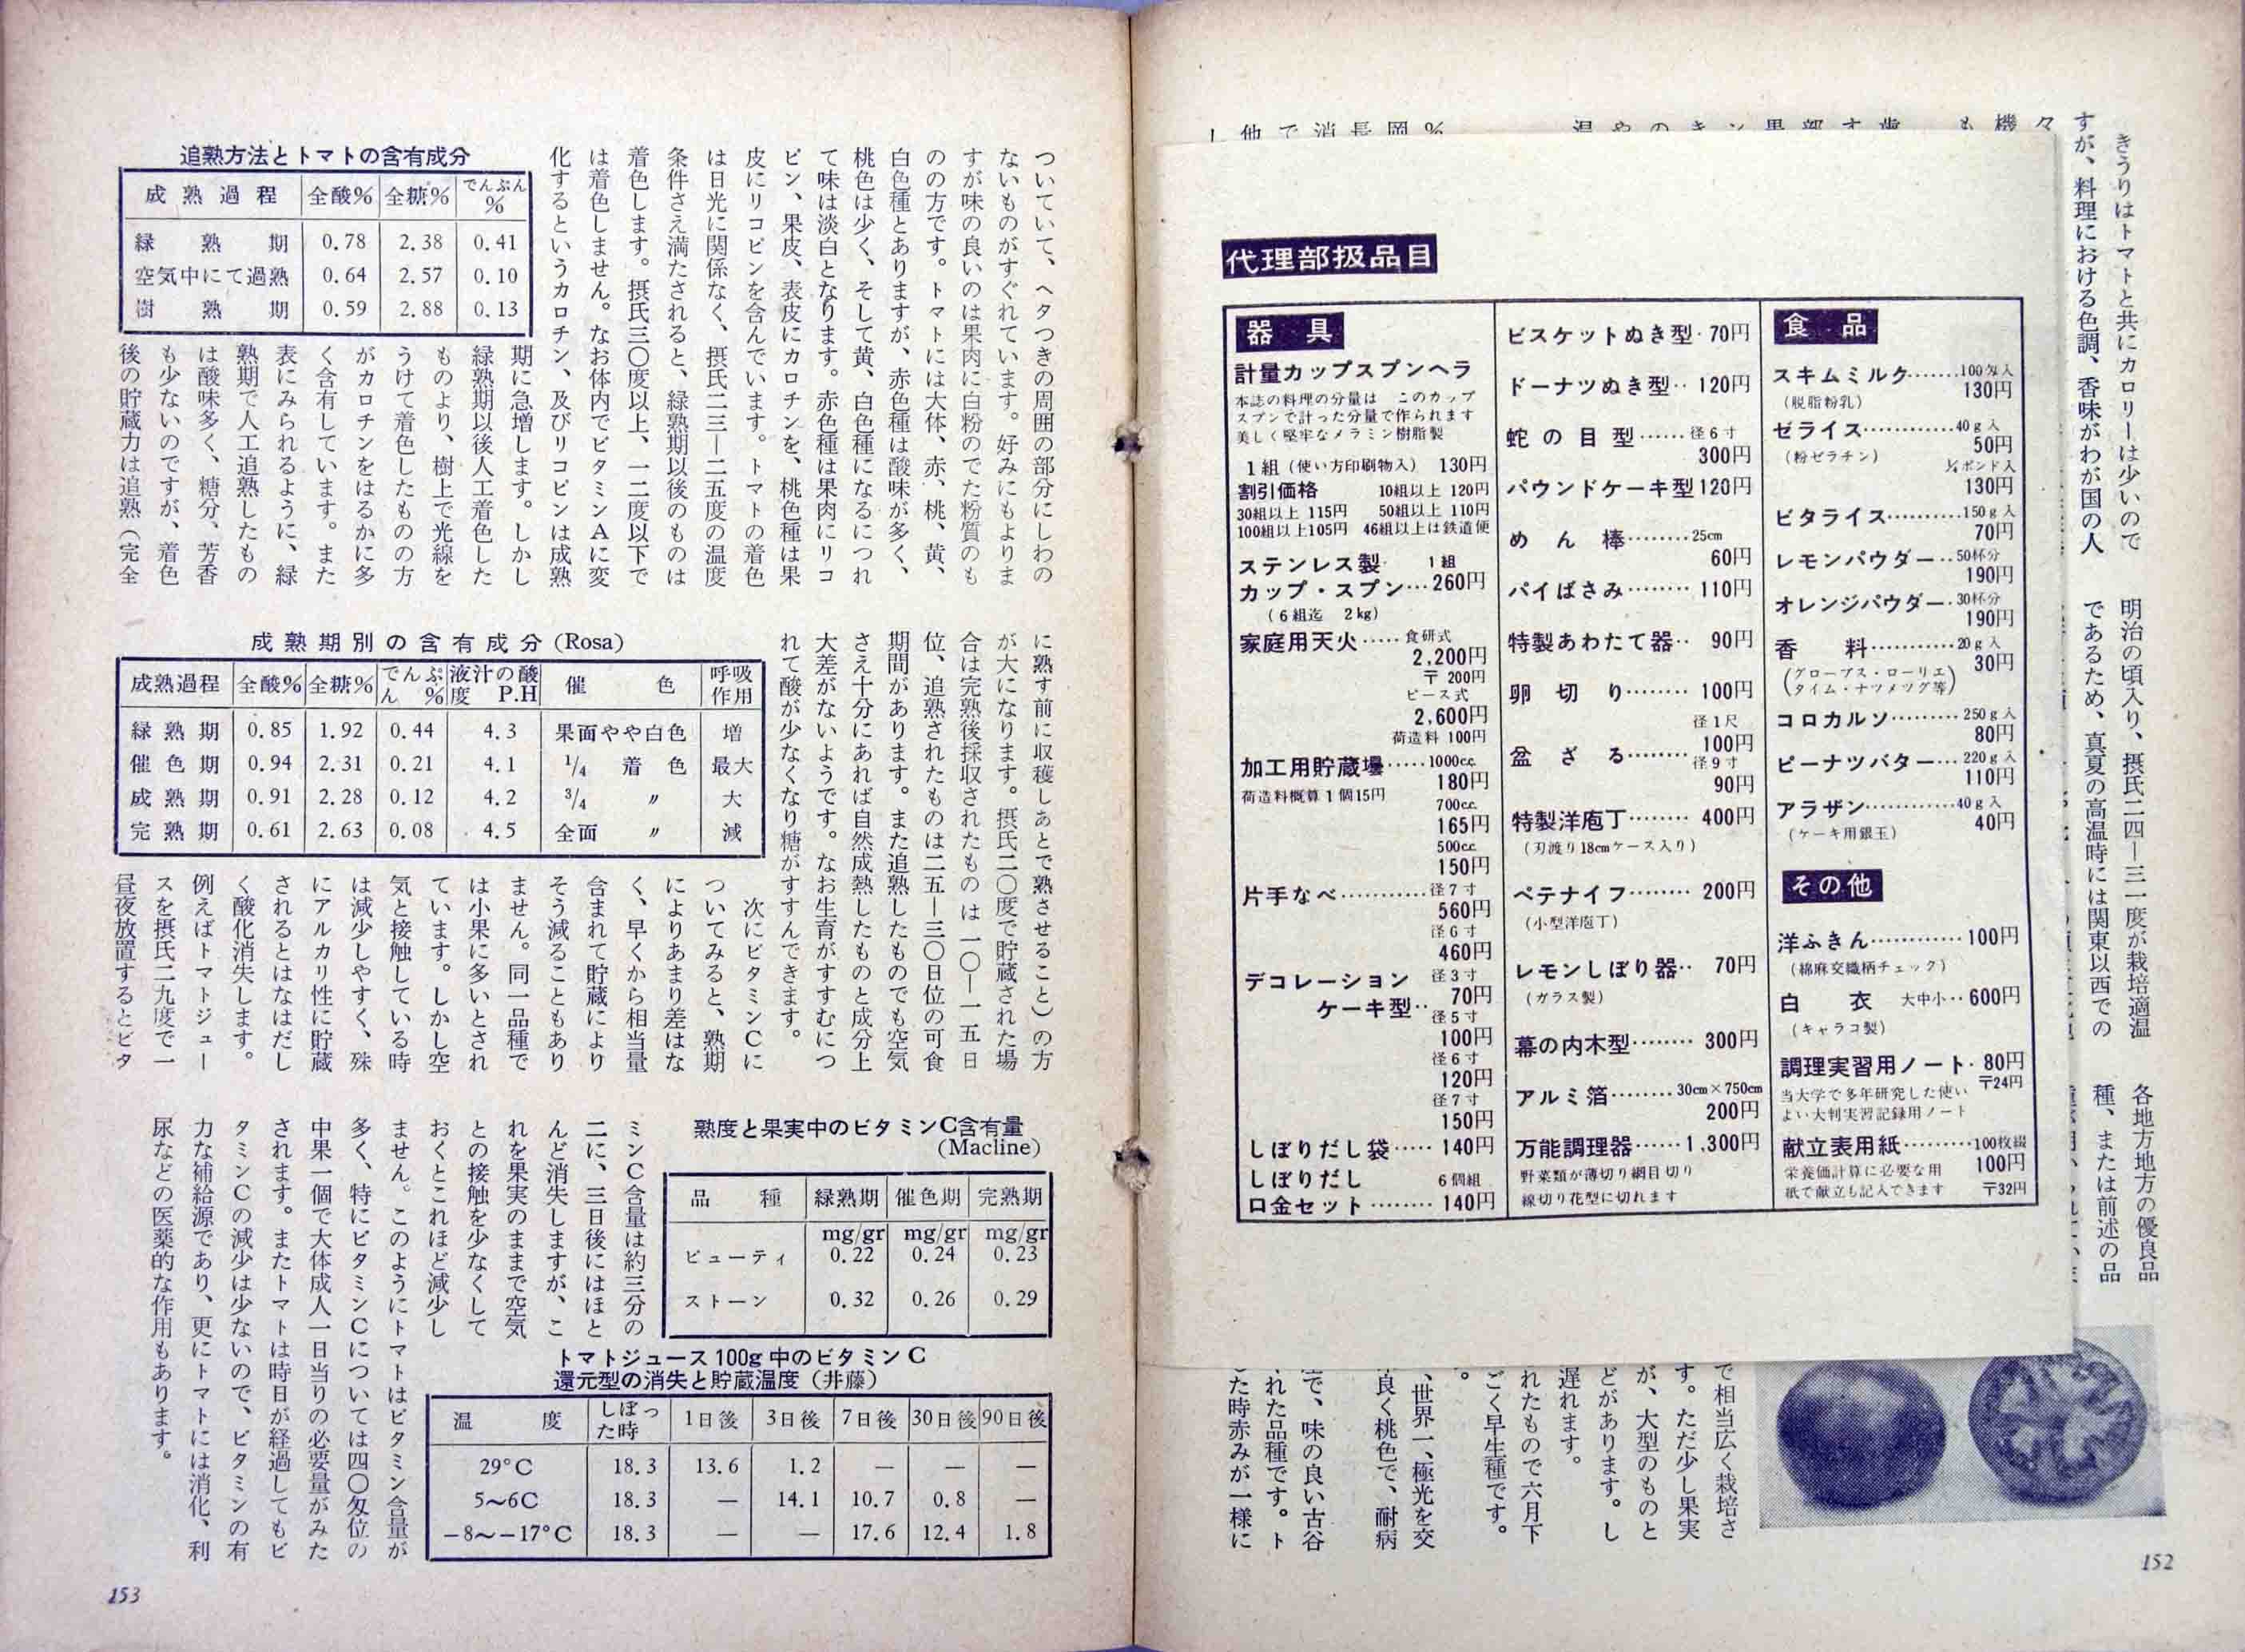 きうりはトマトと共にカロリーは少いので
すが、料理における色調、香味がわが国の人
明治の頃入り、摂氏二四―三一度が栽培適温
であるため、真夏の高温時には関東以西での
各地方地方の優良品
種、または前述の品
で相当広く栽培さ
す。ただ少し果実
が、大型のものと
どがあります。し
遅れます。
れたもので六月下
ごく早生種です。
。
、世界一、極光を交
良く桃色で、耐病
で、味の良い古谷
れた品種です。ト
た時赤みが一様に
152
代理部扱品目
器具
計量カップスプンヘラ
本誌の料理の分量は このカップ
スプンで計った分量で作られます
美しく堅牢なメラミン樹脂製
1組(使い方印刷物入) 130円
割引価格 10組以上 120円
30組以上 115円 50組以上 110円
100組以上105円 46組以上は鉄道便
ステンレス製 1組
カップ・スプン…260円
(6組迄 2kg)
家庭用天火……食研式
2,200円
〒200円
ピース式
2,600円
荷造料 100円
加工用貯蔵壜……1000cc
180円
荷造料概算1個15円
700cc
165円
500cc
150円
片手なべ…………径7寸
560円
径6寸
460円
デコレーション 径3寸
ケーキ型‥ 70円
径5寸
100円
径6寸
120円
径7寸
150円
しぼりだし袋…… 140円
しぼりだし 6個組
口金セット……… 140円
ビスケットぬき型・70円
ドーナツぬき型‥ 120円
蛇の目型……径6寸
300円
パウンドケーキ型120円
めん棒………25cm
60円
パイばさみ……… 110円
特製あわたて器‥ 90円
卵切り……… 100円
径1尺
盆ざる……… 100円
径9寸
90円
特製洋庖丁……… 400円
(刃渡り18cmケース入り)
ペテナイフ……… 200円
(小型洋庖丁)
レモンしぼり器‥ 70円
(ガラス製)
幕の内木型……… 300円
アルミ箔………30cm×750cm
200円
万能調理器……1,300円
野菜類が薄切り網目切り
線切り花型に切れます
食品
スキムミルク……100匁入
(脱脂粉乳) 130円
ゼライス…………40g入
(粉ゼラチン) 50円
¼ポンド入
130円
ビタライス………150g入
70円
レモンパウダー‥50杯分
190円
オレンジパウダー・30杯分
190円
香料…………20g入
30円
(グローブス・ローリエ
タイム・ナツメッグ等)
コロカルソ………250g入
80円
ピーナツバター…220g入
110円
アラザン…………40g入
(ケーキ用銀玉) 40円
その他
洋ふきん…………100円
(綿麻交織柄チェック)
白衣 大中小‥600円
(キャラコ製)
調理実習用ノート・80円
〒24円
当大学で多年研究した使い
よい大判実習記録用ノート
献立表用紙………100枚綴
栄養価計算に必要な用 100円
紙で献立も記入できます 〒32円
ついていて、ヘタつきの周囲の部分にしわの
ないものがすぐれています。好みにもよりま
すが味の良いのは果肉に白粉のでた粉質のも
のの方です。トマトには大体、赤、桃、黄、
白色種とありますが、赤色種は酸味が多く、
桃色は少く、そして黄、白色種になるにつれ
て味は淡白となります。赤色種は果肉にリコ
ピン、果皮、表皮にカロチンを、桃色種は果
皮にリコピンを含んでいます。トマトの着色
は日光に関係なく、摂氏二三―二五度の温度
条件さえ満たされると、緑熟期以後のものは
着色します。摂氏三〇度以上、一二度以下で
は着色しません。なお体内でビタミンAに変
化するというカロチン、及びリコピンは成熟
追熟方法とトマトの含有成分
成熟過程 全酸% 全糖% でんぷん%
緑熟期 0.78 2.38 0.41
空気中にて過熟 0.64 2.57 0.10
樹熟期 0.59 2.88 0.13
期に急増します。しかし
緑熟期以後人工着色した
ものより、樹上で光線を
うけて着色したものの方
がカロチンをはるかに多
く含有しています。また
表にみられるように、緑
熟期で人工追熟したもの
は酸味多く、糖分、芳香
も少ないのですが、着色
後の貯蔵力は追熟(完全
に熟す前に収穫しあとで熟させること)の方
が大になります。摂氏二〇度で貯蔵された場
合は完熟後採収されたものは一〇―一五日
位、追熟されたものは二五―三〇日位の可食
期間があります。また追熟したものでも空気
さえ十分にあれば自然成熟したものと成分上
大差がないようです。なお生育がすすむにつ
れて酸が少なくなり糖がすすんできます。
成熟期別の含有成分(Rosa)
成熟過程 全酸% 全糖% でんぷん% 液汁の酸度P.H 催色 呼吸作用
緑熟期 0.85 1.92 0.44 4.3 果面やや白色 増
催色期 0.94 2.31 0.21 4.1 1/4 着色 最大
成熟期 0.91 2.28 0.12 4.2 3/4 〃 大
完熟期 0.61 2.63 0.08 4.5 全面 〃 減
次にビタミンCに
ついてみると、熟期
によりあまり差はな
く、早くから相当量
含まれて貯蔵により
そう減ることもあり
ません。同一品種で
は小果に多いとされ
ています。しかし空
気と接触している時
は減少しやすく、殊
にアルカリ性に貯蔵
されるとはなはだし
く酸化消失します。
例えばトマトジュー
スを摂氏二九度で一
昼夜放置するとビタ
熟度と果実中のビタミンC含有量
(Macline)
品種 緑熟期 催色期 完熟期
mg/gr mg/gr mg/gr
ビューティ 0.22 0.24 0.23
ストーン 0.32 0.26 0.29
ミンC含量は約三分の
二に、三日後にはほと
んど消失しますが、こ
れを果実のままで空気
との接触を少なくして
おくとこれほど減少し
ません。このようにトマトはビタミン含量が
多く、特にビタミンCについては四〇匁位の
中果一個で大体成人一日当りの必要量がみた
されます。またトマトは時日が経過してもビ
タミンCの減少は少ないので、ビタミンの有
力な補給源であり、更にトマトには消化、利
尿などの医薬的な作用もあります。
トマトジュース100g中のビタミンC
還元型の消失と貯蔵温度(井藤)
温度 しぼった時 1日後 3日後 7日後 30日後 90日後
29°C 18.3 13.6 1.2 — — —
5〜6C 18.3 — 14.1 10.7 0.8 —
−8〜−17°C 18.3 — — 17.6 12.4 1.8
153